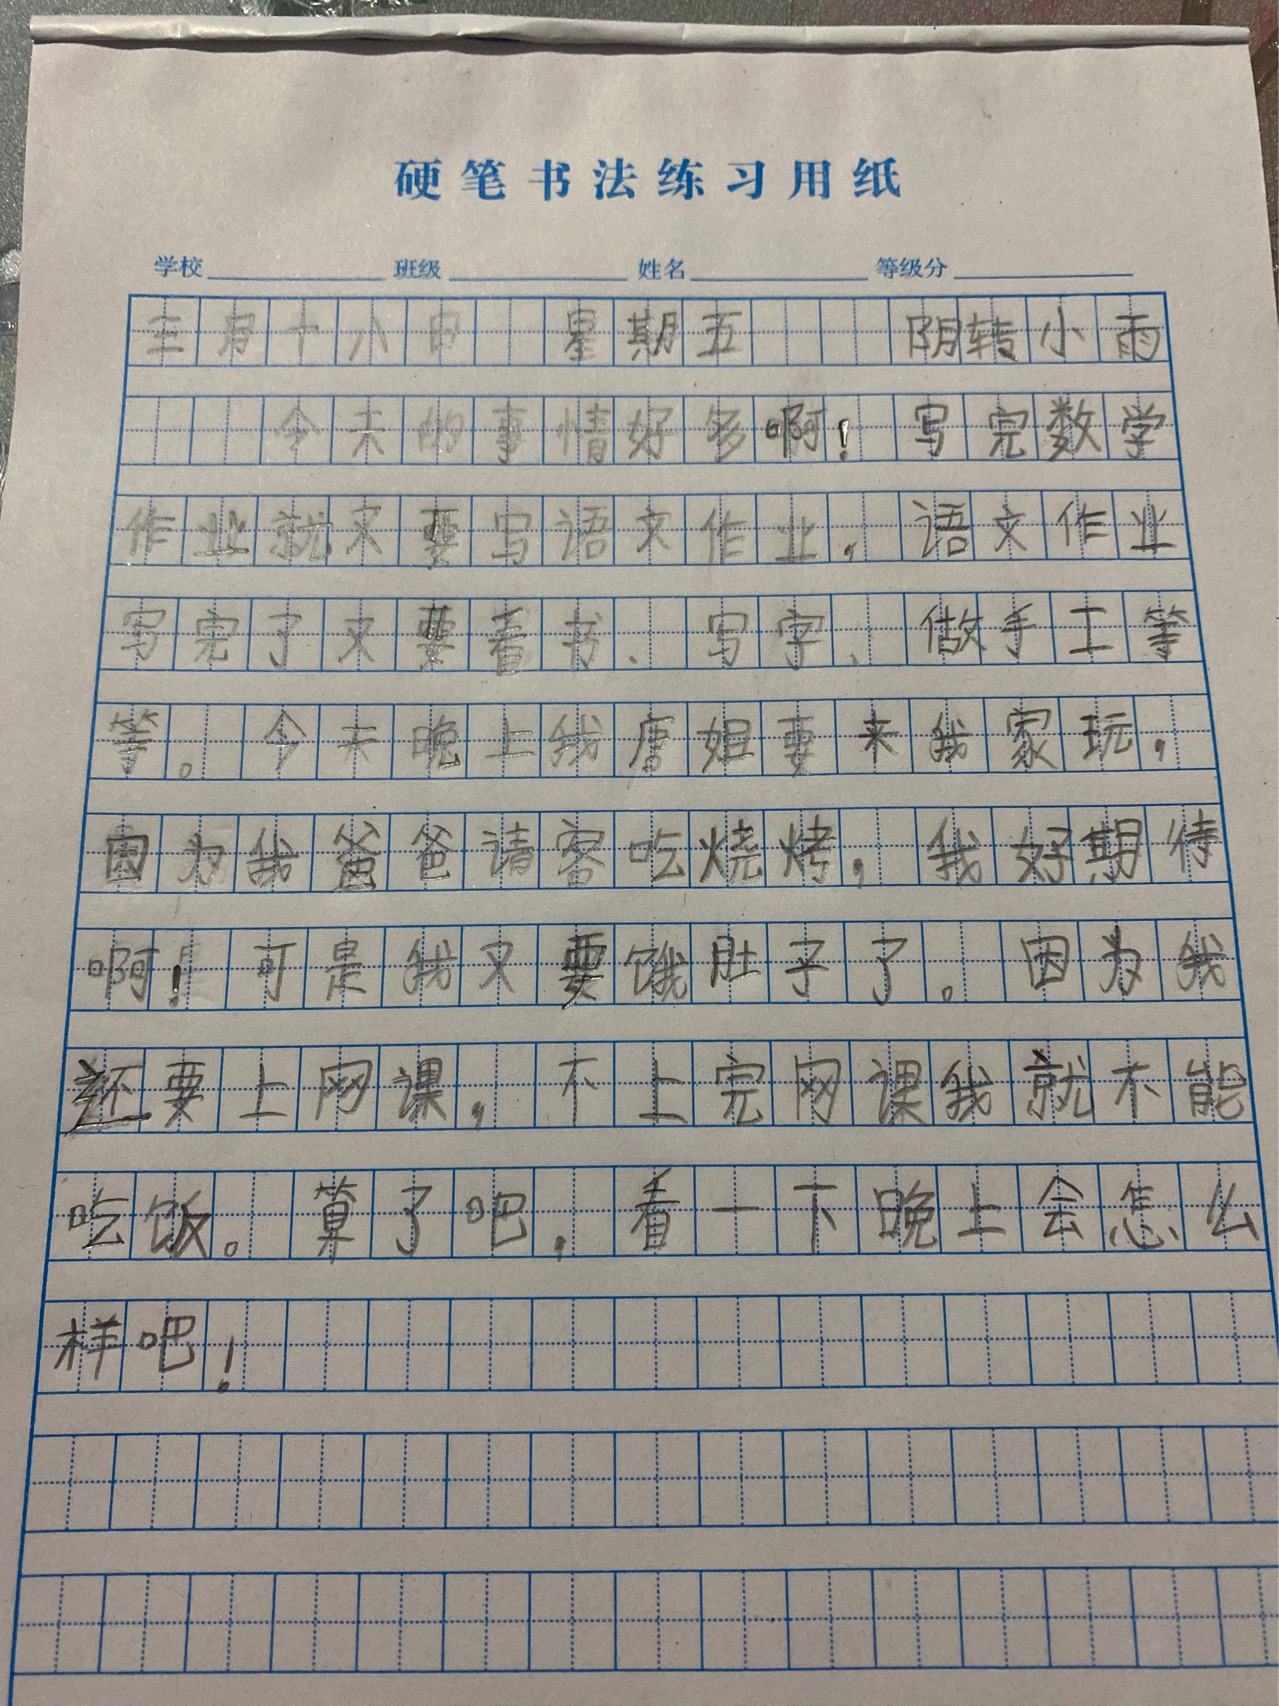 硬笔书法练习用纸
学校 班级 姓名 等级分
三月十八日 星期五 阴转小雨
今天的事情好多啊！写完数学
作业就又要写语文作业，语文作业
写完了又要看书、写字、做手工等
等。今天晚上我唐姐要来我家玩，
因为我爸爸请客吃烧烤，我好期待
啊！可是我又要饿肚子了。因为我
还要上网课，不上完网课我就不能
吃饭。算了吧，看一下晚上会怎么
样吧！